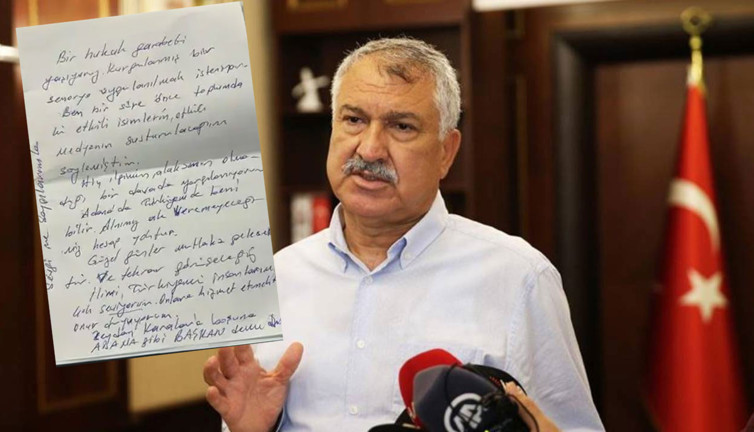 Bir hukuk garabeti
yaşıyoruz. Kurgulanmış bir
senaryo uygulanılmak isteniyor.
Ben bir süre önce toplumda
ki etkili isimlerin, etkili
medyanın susturulacağını
söylemiştim.
Hiç ilgimin, alakamın olma-
dığı bir davada yargılanıyorum
Adana'da Türkiye'de beni
bilir. Alnım ak veremeyeceği
hiç hesap yoktur.
Güzel günler mutlaka gelecek
tir. Ve tekrar görüşeceğiz
İlimi, Türkiyemi insanlarımı
çok seviyorum. Onlara hizmet etmekten
onur duyuyorum
Zeydan Karalar'a boşuna
ADANA gibi BAŞKAN
Sevgi ve saygılarımla